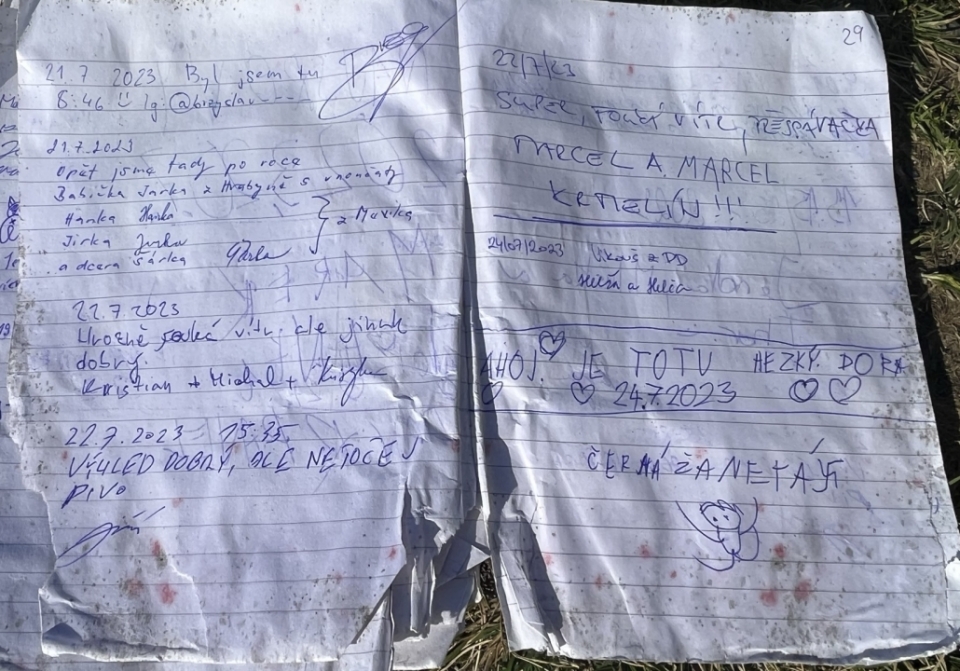 21.7 2023 Byl jsem tu
8:46 Ig: @brezyslav---
21.7.2023
Opět jsme tady po roce
Babička Jarka z Hrabyně s vnoučaty
Hanka Hanka
Jirka Jirka
z Mexika
a dcera Šárka Šárka
22.7.2023
Hrozně velká vítr, ale jinak
dobrý.
Kristian + Michal +
22.7.2023 15:35
VÝHLED DOBRÝ, ALE NETOČEJ
PIVO
29
22/7/23
SUPER, FOUKÁ VÍTR,
MARCEL A MARCEL
!!!
24/07/2023
a Helia
AHOJ. JE TOTU HEZKÝ DORA
24.7.2023
ČERNÁ ŽANETA